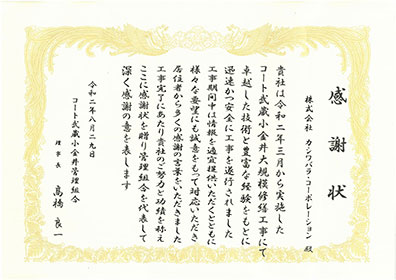 感謝状
株式会社 カシワバラ・コーポレーション 殿
貴社は令和二年三月から実施した
コート武蔵小金井大規模修繕工事にて
卓越した技術と豊富な経験をもとに
迅速かつ安全に工事を遂行されました
工事期間中は情報を適宜提供いただくとともに
様々な要望にも誠意をもって対応いただき
居住者から多くの感謝の言葉をいただきました
工事完了にあたり貴社のご努力と功績を称え
ここに感謝状を贈り管理組合を代表して
深く感謝の意を表します
令和二年八月二九日
コート武蔵小金井管理組合
理事長 髙橋 良一